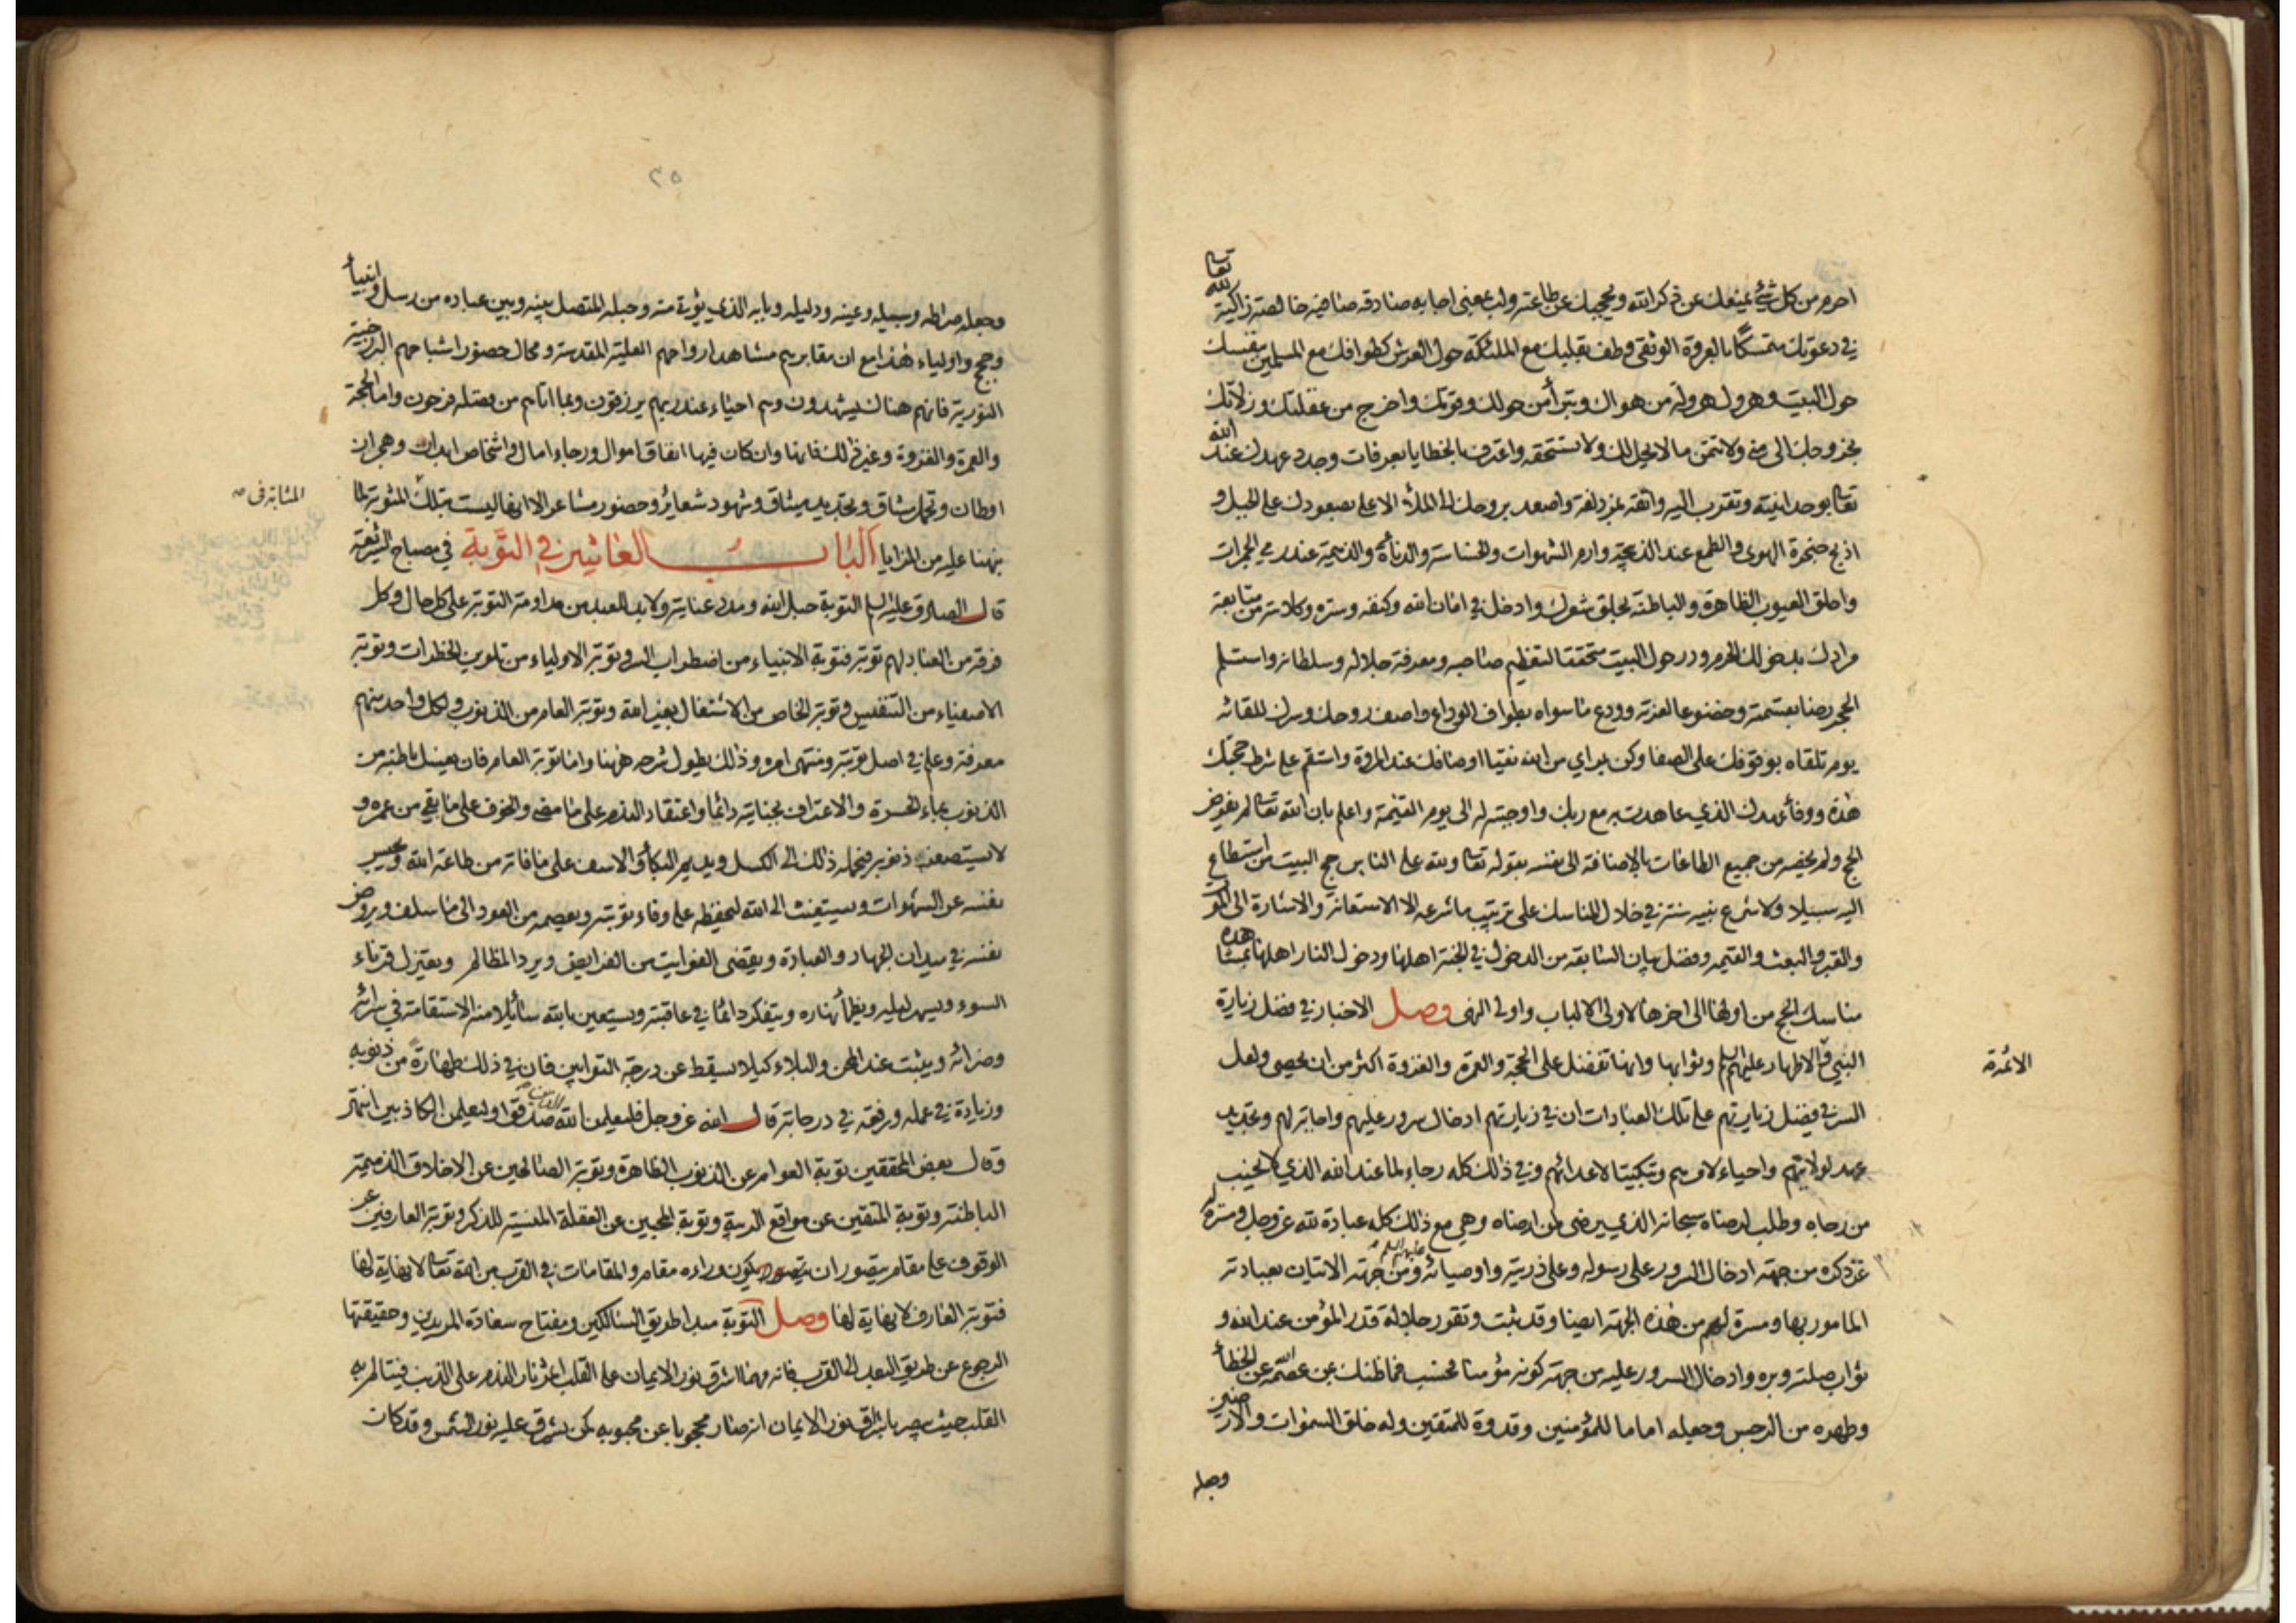 احرم من كل شيء يمنعك عن ذكر الله ويحجبك عن طاعته ولب بمعنى اجابه صادقه صافيه خالصة زاكية لله تعا
في دعوتك متمسكا بالعروة الوثقى وطف بقلبك مع الملئكة حول العرش كطوافك مع المسلمين بنفسك
حول البيت وهرول هرولة من هواك وتبرأ من حولك وقوتك واخرج من غفلتك وزلاتك
بخروجك الى منى ولا تتمن ما لا يحل لك ولا تستحقه واعترف بالخطايا بعرفات وجدد عهدك عند الله
تعا بوحدانيته وتقرب اليه واتقه بمزدلفة واصعد بروحك الى الملأ الاعلى بصعودك على الجبل و
اذبح حنجرة الهوى والطمع عند الذبيحة وارم الشهوات والخساسة والدنائة والذميمة عند رمي الجمرات
واحلق العيوب الظاهرة والباطنة بحلق شعرك وادخل في امان الله وكنفه وستره وكلائته من متابعة
مرادك بدخولك الحرم ودر حول البيت متحققا لتعظيم صاحبه ومعرفة جلاله وسلطانه واستلم
الحجر رضا بقسمته وخضوعا لعزته وودع ما سواه بطواف الوداع واصف روحك وسرك للقائه
يوم تلقاه بوقوفك على الصفا وكن بمراي من الله نقيا اوصافك عند المروة واستقم على شرط حجتك
هذه ووفاء عهدك الذي عاهدت به مع ربك واوجبته له الى يوم القيمة واعلم بان الله تعا لم يفترض
الحج ولم يخصه من جميع الطاعات بالاضافة الى نفسه بقوله تعا ولله على الناس حج البيت من استطاع
اليه سبيلا ولا شرع نبيه سنة في خلال المناسك على ترتيب ما شرعه الا للاستعانة والاشارة الى الموت
والقبر والبعث والقيمه وفضل بيان السابقه من الدخول في الجنة اهلها ودخول النار اهلها بمشاهدة
مناسك الحج من اولها الى اخرها لاولي الالباب واولي النهى وصل الاخبار في فضل زيارة
النبي والاطهار عليهم السلم وثوابها وانها تفضل على الحجة والعمرة والغزوة اكثر من ان يحصى ولعل
الائمة
السر في فضل زيارتهم على تلك العبادات ان في زيارتهم ادخال سرور عليهم واجابة لهم وتجديد
عهد لولايتهم واحياء لامرهم وتبكيتا لاعدائهم وفي ذلك كله رجاء لما عند الله الذي لا يخيب
من رجاه وطلب لرضاه سبحانه الذي يرضى لمن ارضاه وهي مع ذلك كله عبادة لله عز وجل ومسرة له
عز ذكره من جهة ادخال السرور على رسوله وعلى ذريته واوصيائه عليهم السلم ومن جهة الاتيان بعبادته
المامور بها ومسرة لهم من هذه الجهة ايضا وقد ثبت وتقرر جلالة قدر المؤمن عند الله و
ثواب صلته وبره وادخال السرور عليه من جهة كونه مؤمنا فحسب فما ظنك بمن عصمه الله عن الخطأ
وطهره من الرجس وجعله اماما للمؤمنين وقدوة للمتقين وله خلق السموات والارضين
وجعله
٢٥
وجعله صراطه وسبيله وعينه ودليله وبابه الذي يؤتى منه وحبله المتصل بينه وبين عباده من رسل وانبيأ
وحجج واولياء هذا مع ان مقابرهم مشاهد ارواحهم العلية المقدسة ومحال حضور اشباحهم البرزخية
النورية فانهم هناك يشهدون وهم احياء عند ربهم يرزقون وبما اتاهم من فضله فرحون واما الحجة
والعمرة والغزوة وغير ذلك فانها وان كان فيها انفاق اموال ورجاء امال واشخاص ابدان وهجران
اوطان وتحمل مشاق وتجديد ميثاق وشهود شعائر وحضور مشاعر الا انها ليست بتلك المثوبة لما
المثابة في
نبهنا عليه من المزايا الباب العاشر في التوبة في مصباح الشريعة
قال الصادق عليه السلم التوبة حبل الله ومدد عنايته ولا بد للعبد من مداومة التوبة على كل حال وكل
فرقة من العباد لهم توبة فتوبة الانبياء من اضطراب السر وتوبة الاولياء من تلوين الخطرات وتوبة
الاصفياء من التنفيس وتوبة الخاص من الاشتغال بغير الله وتوبة العام من الذنوب ولكل واحد منهم
معرفة وعلم في اصل توبته ومنتهى امره وذلك يطول شرحه ههنا واما توبة العام فان يغسل باطنه من
الذنوب بماء الحسرة والاعتراف بجنايته دائما واعتقاد الندم على ما مضى والخوف على ما بقي من عمره و
لا يستصغر ذنوبه فيحمله ذلك الى الكسل ويديم البكأ والاسف على ما فاته من طاعة الله ويحبس
نفسه عن الشهوات ويستغيث الى الله ليحفظه على وفاء توبته ويعصمه من العود الى ما سلف ويروض
نفسه في ميدان الجهاد والعبادة ويقضي الفوايت من الفرايض ويرد المظالم ويعتزل قرناء
السوء ويسهر ليله ويظمأ نهاره ويتفكر دائما في عاقبته ويستعين بالله سائلا منه الاستقامة في سرائه
وضرائه ويثبت عند المحن والبلاء كيلا يسقط عن درجة التوابين فان في ذلك طهارة من ذنوبه
وزيادة في عمله ورفعة في درجاته قال الله عز وجل فليعلمن الله الذين صدقوا وليعلمن الكاذبين انتهى
وقال بعض المحققين توبة العوام عن الذنوب الظاهرة وتوبة الصالحين عن الاخلاق الذميمة
الباطنة وتوبة المتقين عن مواقع الريبة وتوبة المحبين عن الغفلة المنسية للذكر وتوبة العارفين عن
الوقوف على مقام يتصور ان يكون وراءه مقام والمقامات في القرب من الله تعا لا نهاية لها
فتوبة العارف لا نهاية لها وصل التوبة مبدا طريق السالكين ومفتاح سعادة المريدين وحقيقتها
الرجوع عن طريق البعد الى القرب فانه مهما اشرق نور الايمان على القلب اثمر نار الندم على الذنب فيتالم به
القلب حيث يبصر باشراق نور الايمان انه صار محجوبا عن محبوبه كمن يشرق عليه نور الشمس وقد كان